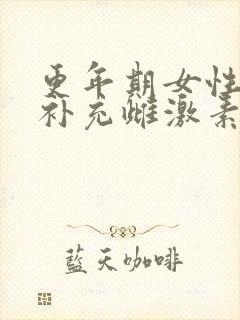 更年期女性
补充雌激素
藍天咖啡